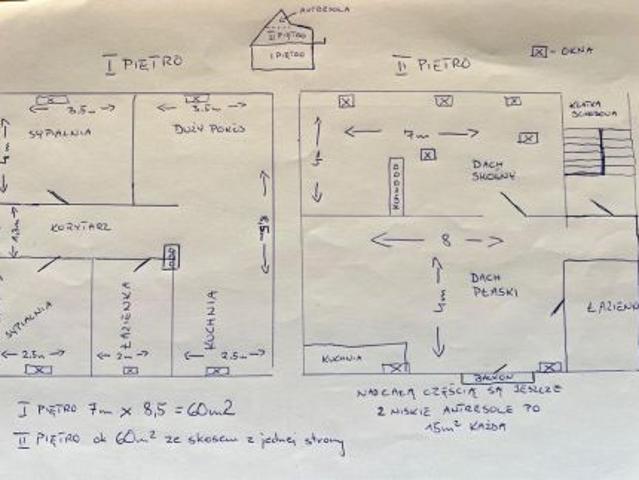 ANTRESOLA
II PIĘTRO
I PIĘTRO
I PIĘTRO
II PIĘTRO
X - OKNA
3.5m
3.5m
SYPIALNIA
DUŻY POKÓJ
4m
KORYTARZ
SYPIALNIA
ŁAZIENKA
KUCHNIA
2.5m
2m
2.5m
7m
DACH
SKOŚNY
KLATKA
SCHODOWA
8
4m
DACH
PŁASKI
ŁAZIENKA
KUCHNIA
BALKON
I PIĘTRO 7m x 8,5 = 60m2
II PIĘTRO ok 60m² ze skosem z jednej strony
NAD CAŁĄ CZĘŚCIĄ SĄ JESZCZE
2 NISKIE ANTRESOLE PO
15m² KAŻDA